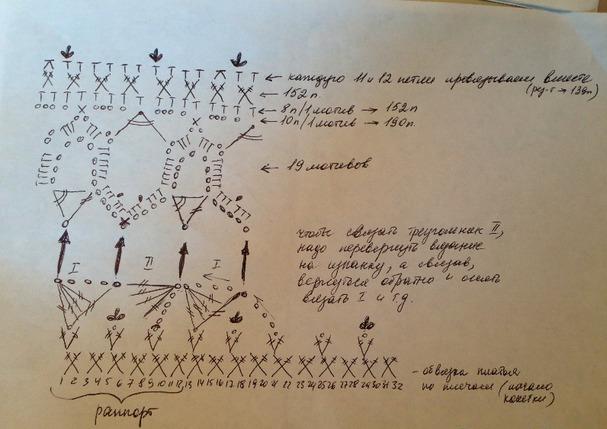 ← каждую 11 и 12 петлю провязываем вместе
(рез-т → 139п)
← 152п.
← 8п/1мотив → 152п
← 10п/1мотив → 190п.
← 19 мотивов
чтобы связать треугольник II,
надо перевернуть вязание
на изнанку, а связав,
вернуться обратно и опять
вязать I и т.д.
I II I
- обвязка платья
по плечам (начало
кокетки)
1 2 3 4 5 6 7 8 9 10 11 12 13 14 15 16 17 18 19 20 21 22 23 24 25 26 27 28 29 30 31 32
раппорт